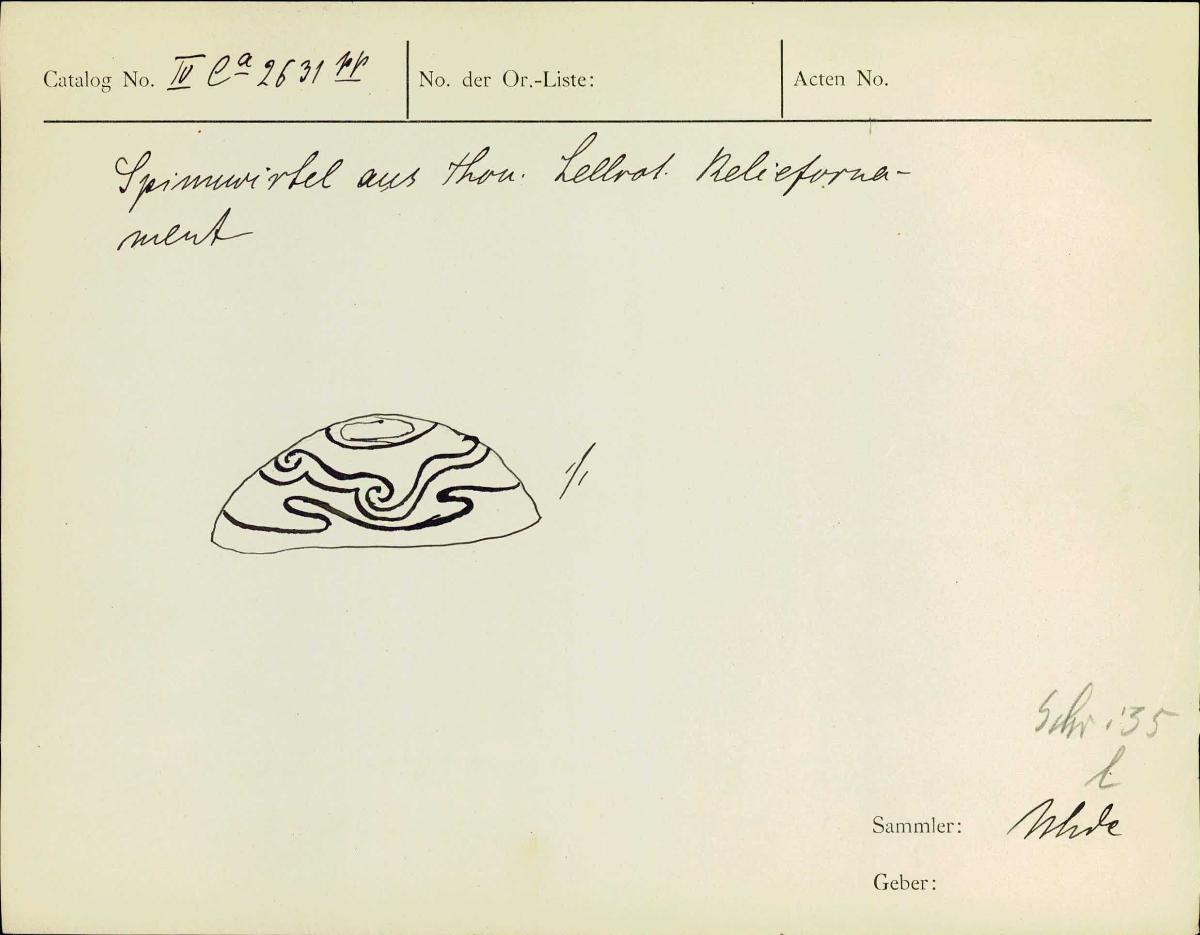 Catalog No. IV Ca 2631 pp
No. der Or.-Liste:
Acten No.
Spinnwirtel aus Thon. Hellrot. Reliefornа-
ment
1/1
Schr. 35
l
Sammler: Uhde
Geber: